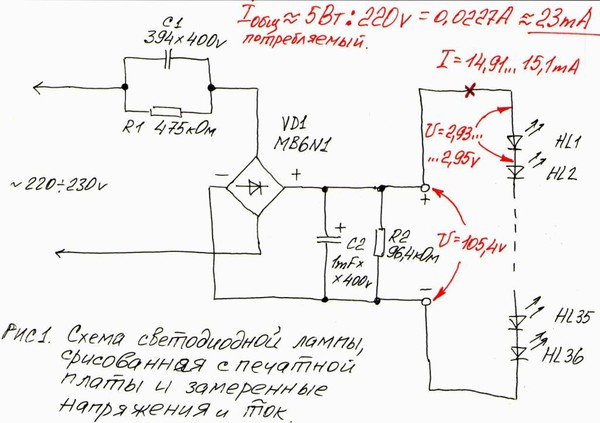 Iобщ ≈ 5Вт : 220v = 0,0227A ≈ 23mA
потребляемый.
C1
394×400v
I = 14,91... 15,1mA
R1 475кОм
VD1
MB6N1
U=2,93...
...2,95v
HL1
HL2
~220÷230v
−
+
+
+
C2
1mF×
×400v
R2
96,4кОм
U=105,4v
−
HL35
HL36
РИС1. Схема светодиодной лампы,
срисованная с печатной
платы и замеренные
напряжения и ток.